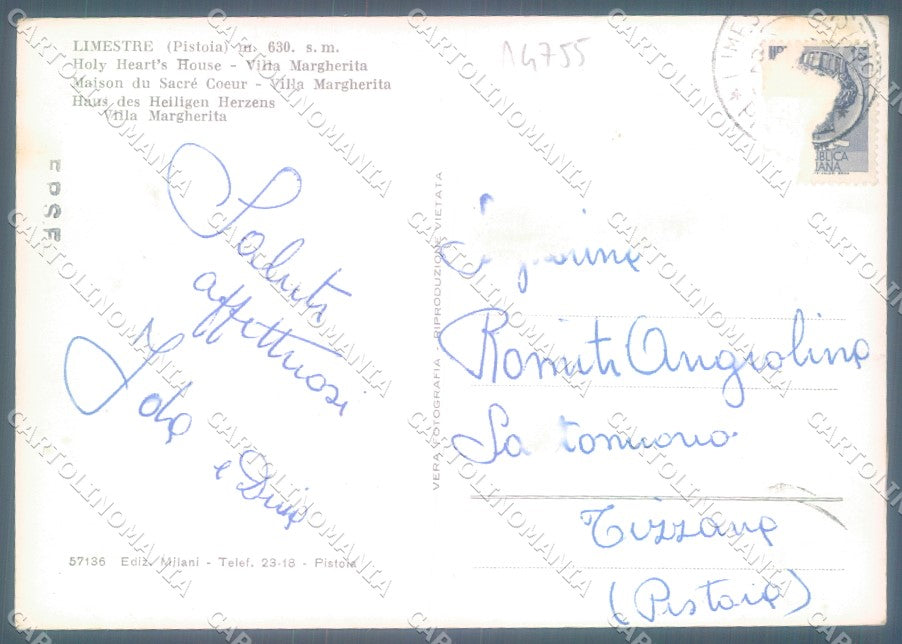 LIMESTRE (Pistoia) m. 630. s. m.
Holy Heart's House - Villa Margherita
Maison du Sacré Coeur - Villa Margherita
Haus des Heiligen Herzens
Villa Margherita
14755
Saluti
affettuosi
Ida
e Dina
VERA FOTOGRAFIA - RIPRODUZIONE VIETATA
Romiti Angiolina
Tizzana
(Pistoia)
57136 Ediz. Milani - Telef. 23-18 - Pistoia
CARTOLINOMANIA